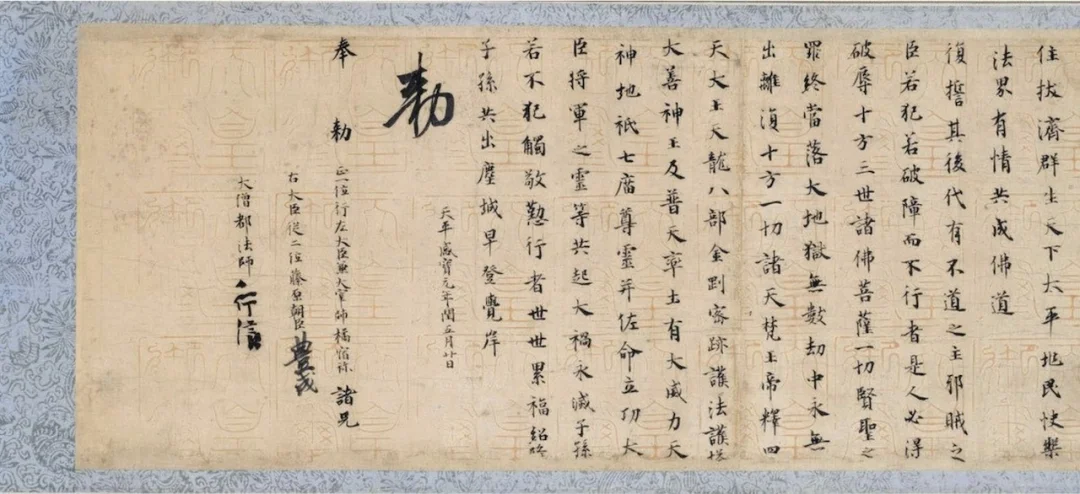 住拔濟群生天下太平兆民快樂
法界有情共成佛道
復誓其後代有不道之主邪賊之
臣若犯若破障而不行者是人必得
破辱十方三世諸佛菩薩一切賢聖之
罪終當落大地獄無數劫中永無
出離復十方一切諸天梵王帝釋四
天大王天龍八部金剛密跡護法護塔
大善神王及普天率土有大威力天
神地祇七廟尊靈并佐命立功大
臣將軍之靈等共起大禍永滅子孫
若不犯觸敬懃行者世世累福紹隆
子孫共出塵域早登覺岸
天平感寶元年閏五月廿日
勅
奉勅 正一位行左大臣兼大宰帥橘宿祢諸兄
右大臣從二位藤原朝臣豊成
大僧都法師行信